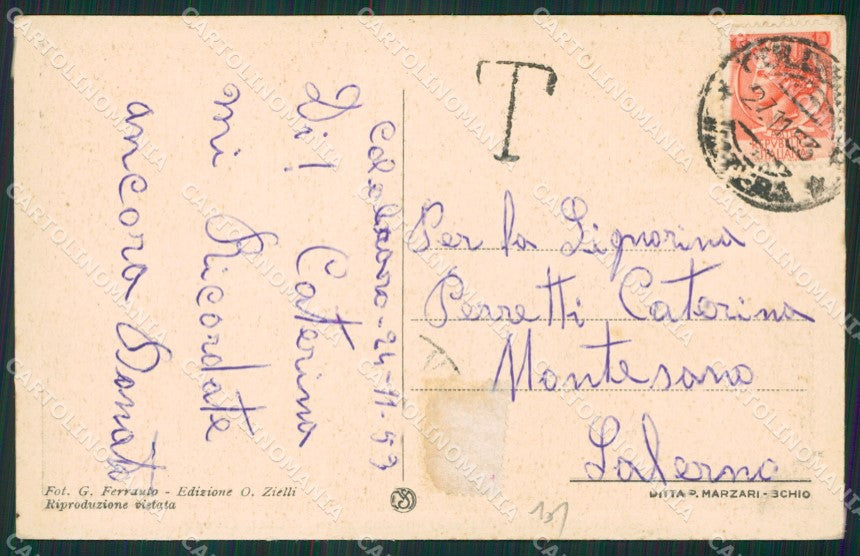 Colobraro - 24 - 11 - 53
Di! Caterina
mi Ricordate
ancora Donato
T
27.11.53
Per la Signorina
Perretti Caterina
Montesano
Salerno
Fot. G. Ferrauto - Edizione O. Zielli
Riproduzione vietata
DITTA P. MARZARI - SCHIO
CARTOLINOMANIA